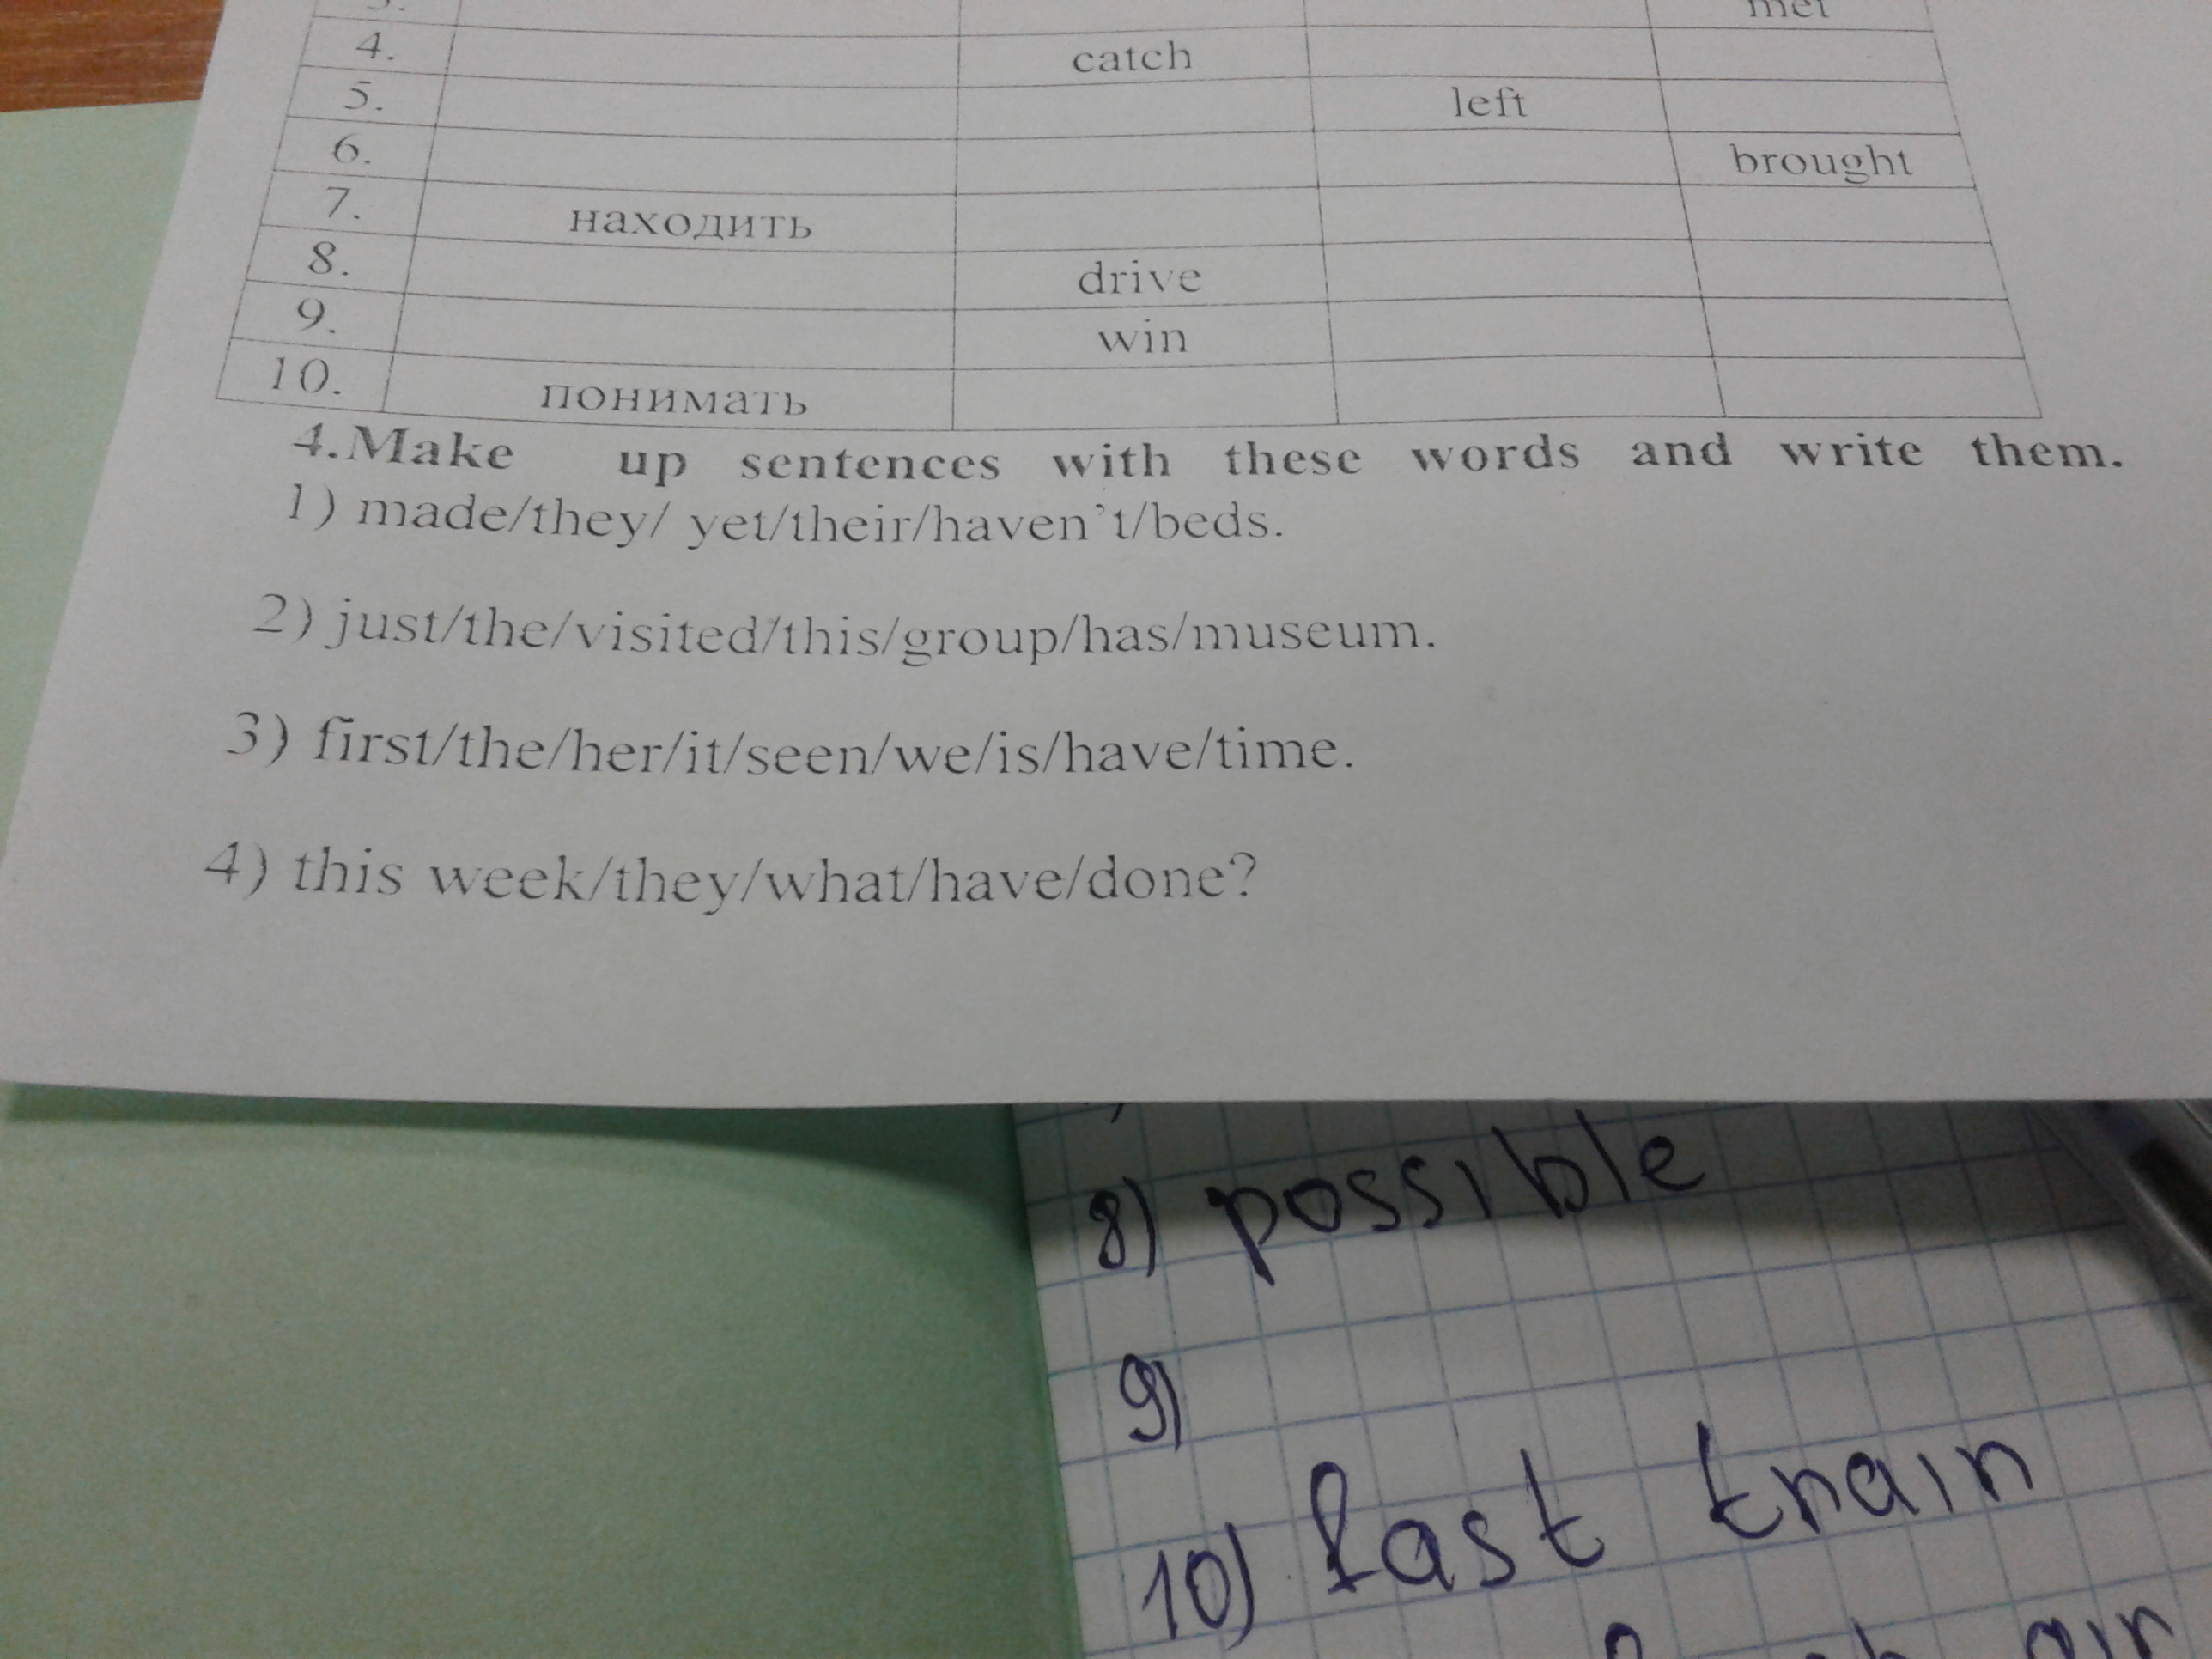 met
4. catch
5. left
6. brought
7. находить
8. drive
9. win
10. понимать
4.Make up sentences with these words and write them.
1) made/they/ yet/their/haven't/beds.
2) just/the/visited/this/group/has/museum.
3) first/the/her/it/seen/we/is/have/time.
4) this week/they/what/have/done?
8) possible
9)
10) fast train